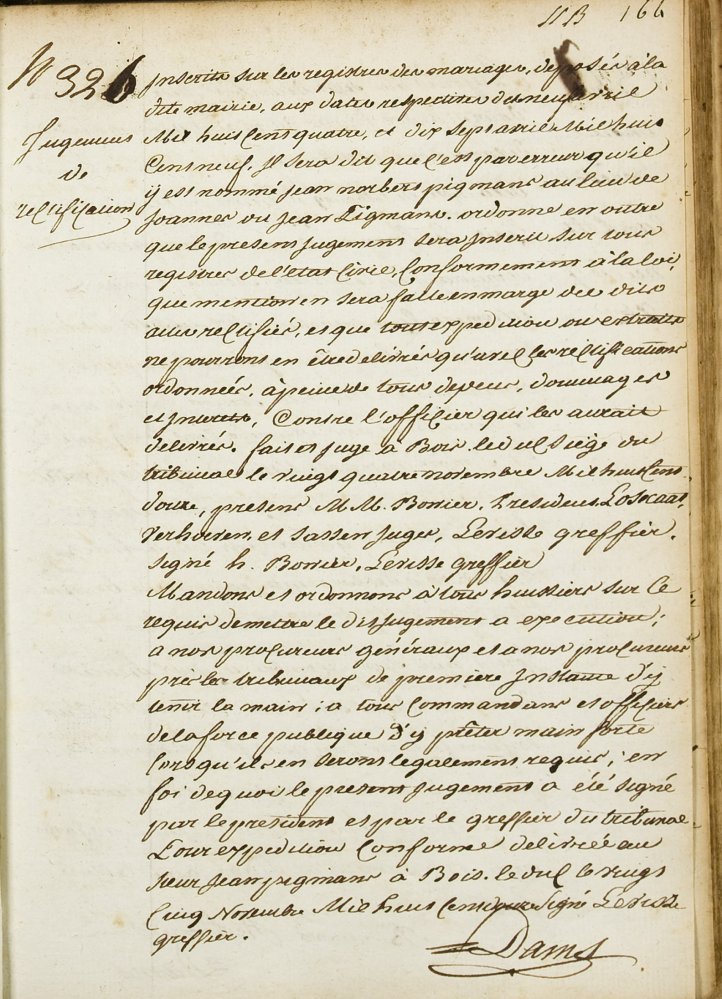 166
N 326
Jugement
de
rectification
Inscrits sur les registres des mariages, déposés à la
dite mairie, aux dates respectives du neuf avril
Mil huit Cent quatre, et dix sept avril Mil huit
Cent neuf. Il sera dit que C'est par erreur qu'il
y est nommé jean norbert pigmans au lieu de
Joannes ou Jean Pigmans. ordonne en outre
que le present jugement sera Inscrit sur tous
registres de l'état Civil, Conformement à la loi,
que mention en sera faite en marge des dits
actes rectifiés, et que toute expedition ou extraits
ne pourront en être delivrés qu'avec les rectifications
ordonnées, à peine de tous depens, dommages
et Interets, Contre l'officier qui les aurait
delivrés. fait et juge a Bois le duc Siège du
tribunal le vingt quatre novembre Mil huit Cent
douze, present M M. Bowier, President,
Verhoeven, et Sassen Juges, Lerisse greffier.
Signé h. Bowier, Lerisse greffier
Mandons et ordonnons à tous huissiers sur Ce
requis de mettre le dit jugement a execution;
a nos procureurs généraux et a nos procureurs
près les tribunaux de première Instance d'y
tenir la main; a tous Commandans et officiers
de la force publique d'y prêter main forte
Lorsqu'ils en seront legalement requis; en
foi de quoi le present jugement a été signé
par le president et par le greffier du tribunal
Pour expedition Conforme delivrée au
sieur Jean pigmans à Bois. le duc le vingt
Cinq Novembre Mil huit Cent douze Signé Lerisse
greffier.
Dams